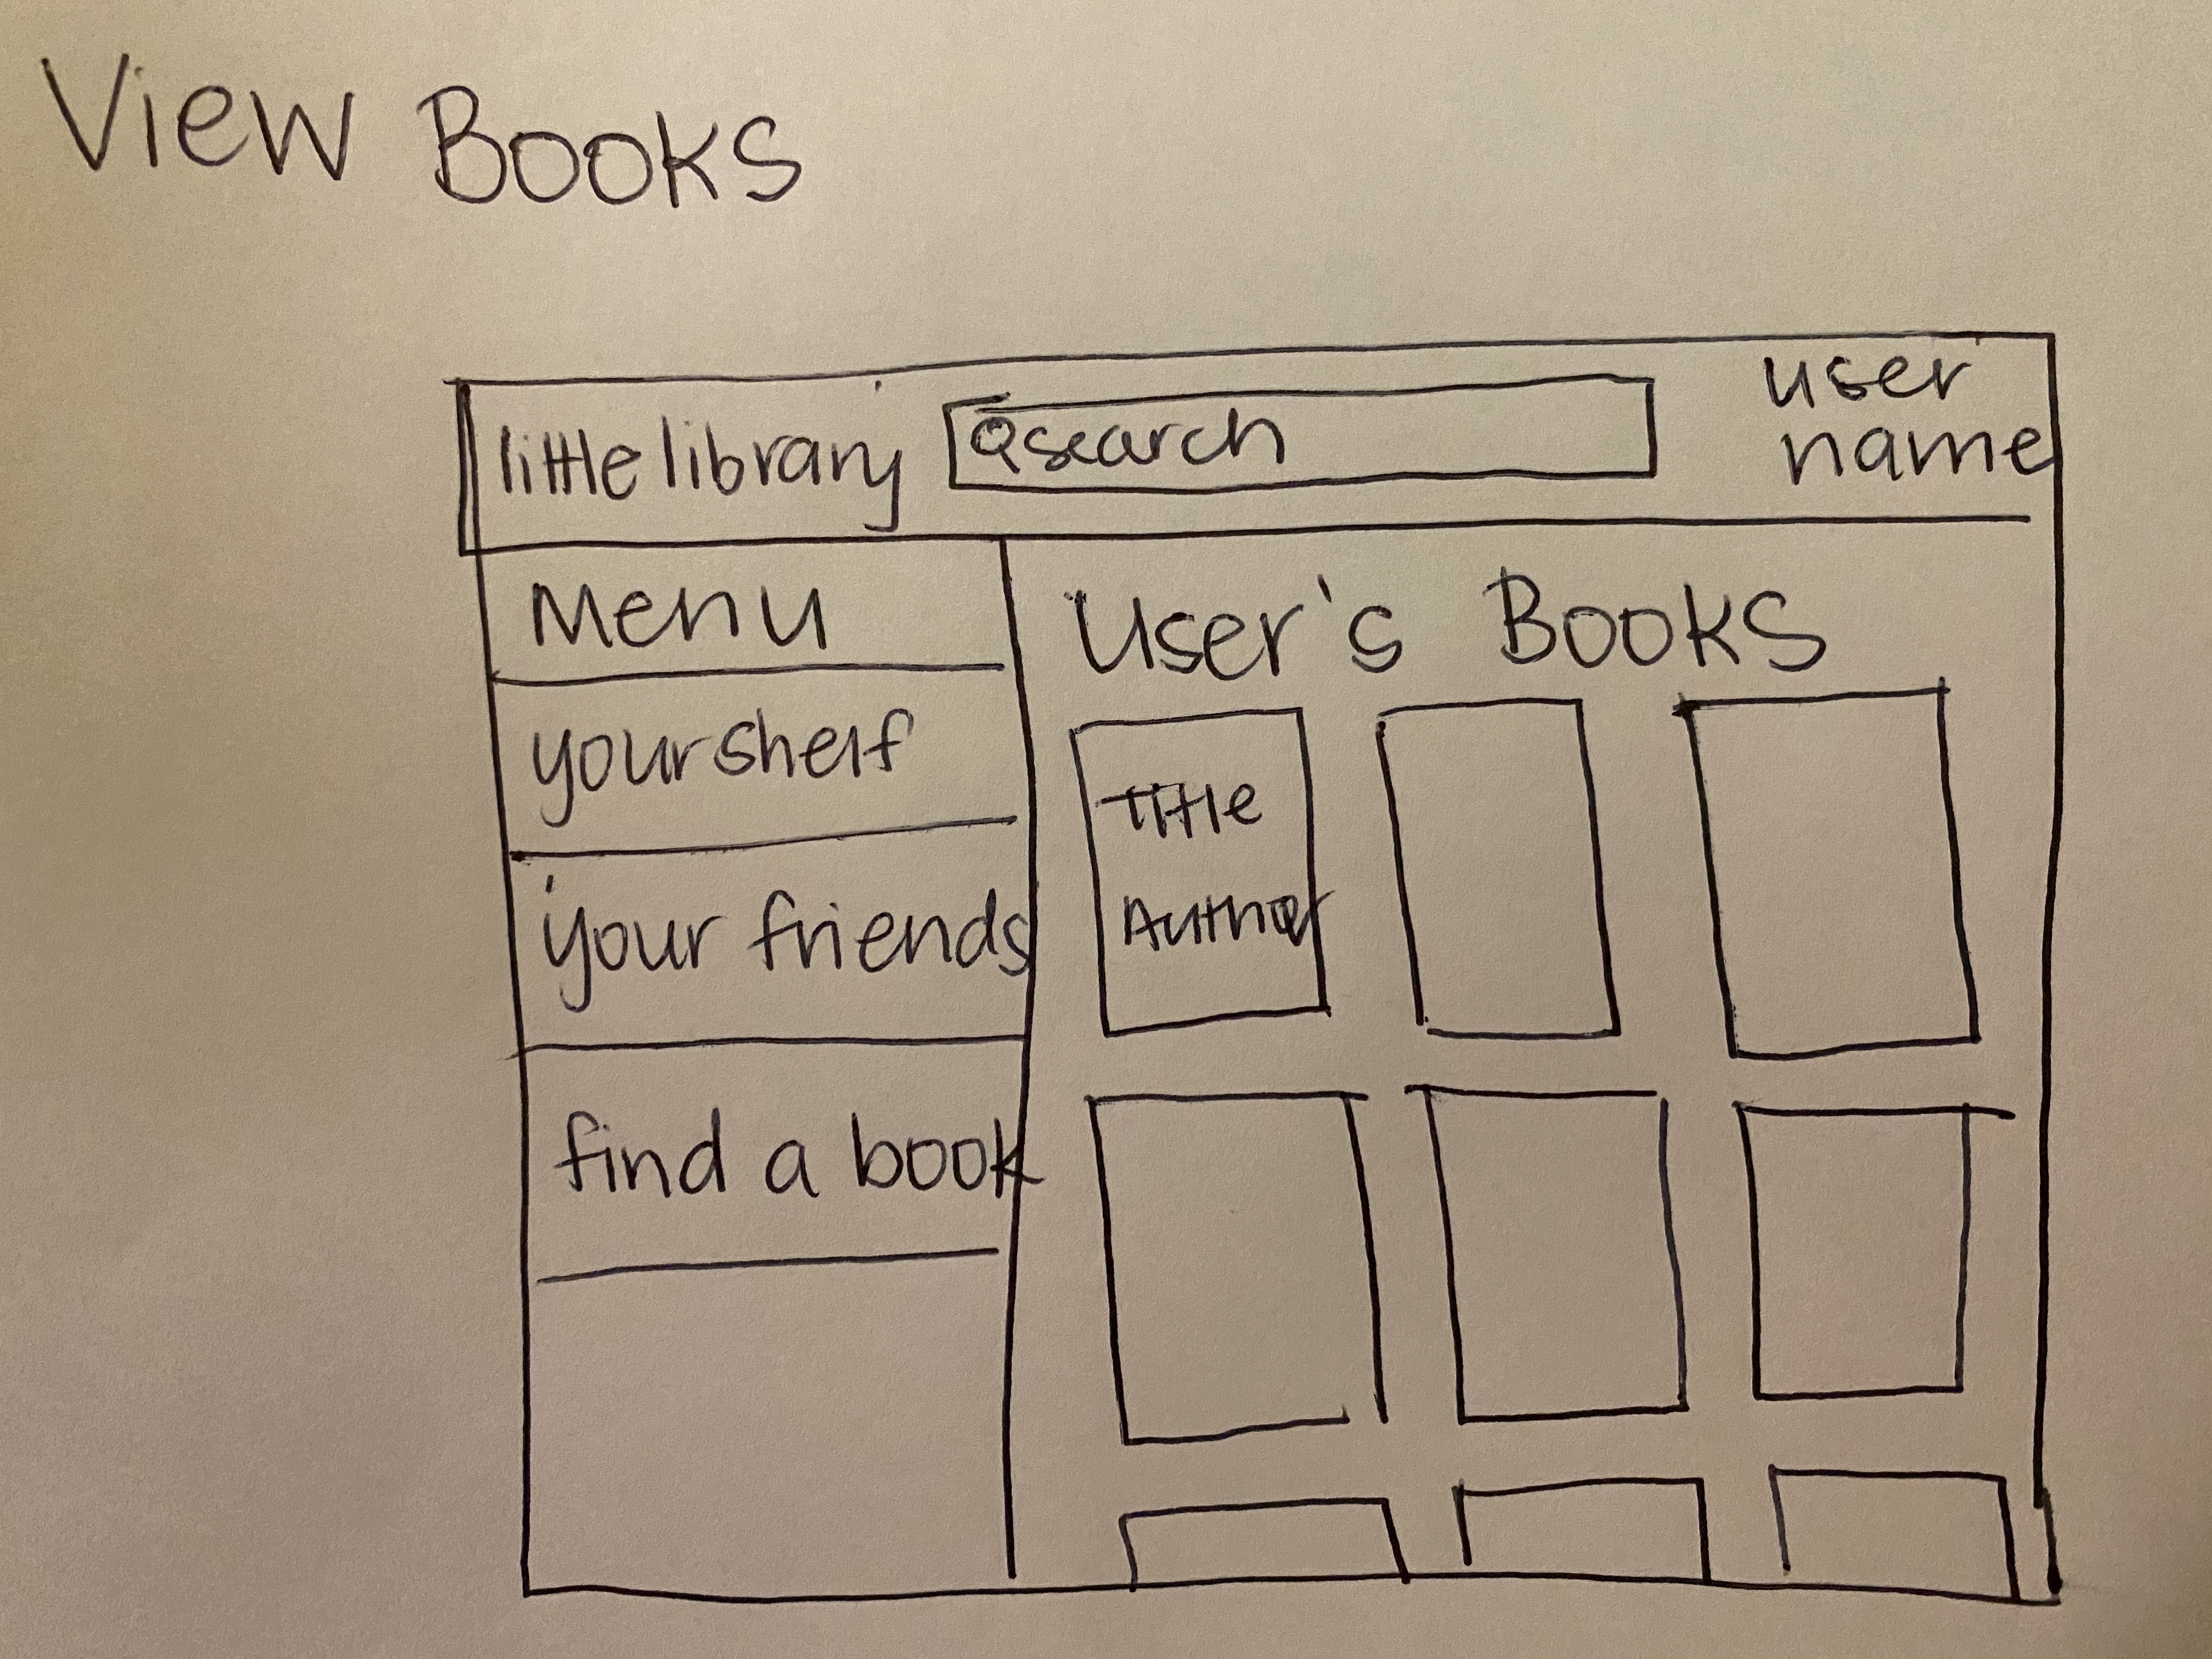 View Books
little library
search
user
name
Menu
your shelf
your friends
find a book
User's Books
Title
Author